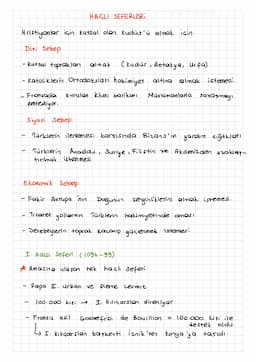 HAÇLI SEFERLERİ
Hristiyanlar için kutsal olan Kudüs'ü almak için.
Dini Sebep
- Kutsal toprakları almak (Kudüs, Antakya, Urfa)
- Katoliklerin Ortodoksları hakimiyet altına almak istemesi.
- Fransada kurulan Kluni tarikatı Müslümanlarla savaşmayı
emrediyor.
Siyasi Sebep
- Türklerin ilerlemesi karşısında Bizans'ın yardım çığlıkları
- Türklerin Anadolu, Suriye, Filistin ve Akdenizden uzaklaş-
tırılmak istenmesi
Ekonomik Sebep
- Fakir Avrupa'nın Doğunun zenginliklerini almak istemesi.
- Ticaret yollarının Türklerin hakimiyetinde olması
- Derebeylerin toprak kazanıp güçlenmek istemesi
I. Haçlı Seferi (1096-99)
Amacına ulaşan tek haçlı seferi
- Papa II. Urban ve Pierre Lermit
- 100.000 kişi → I. Kılıçarslan direniyor
- Fransa asil Godefroi de Bouillon = 100.000 kişi ile
destek oldu
↳ I. Kılıçarslan başkenti İznik'ten Konya'ya taşıdı.